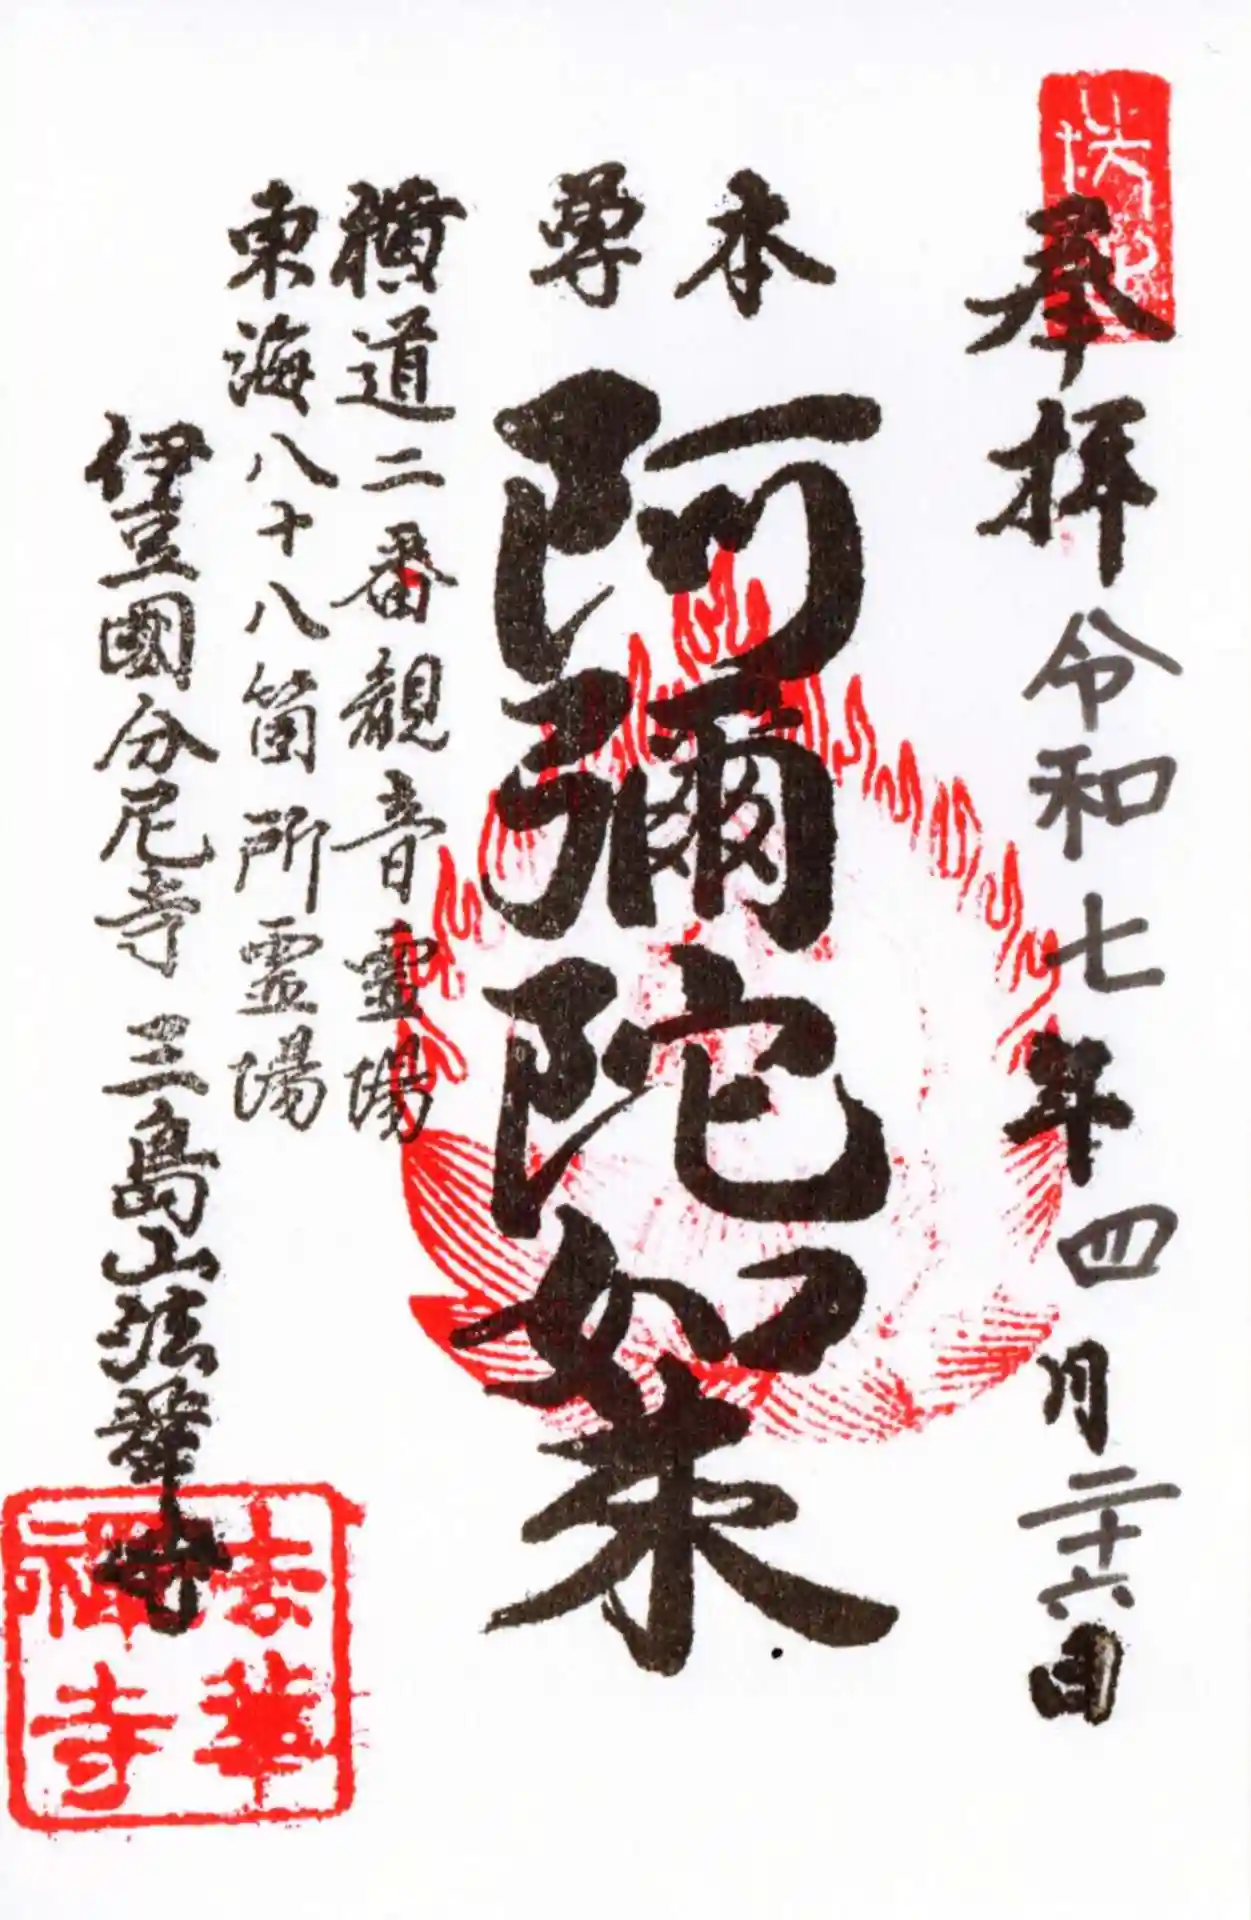 奉拝 令和七年四月二十六日
本尊
阿彌陀如来
横道二番観音霊場
東海八十八箇所霊場
伊豆國分尼寺 三島山法華寺
法華
禅寺